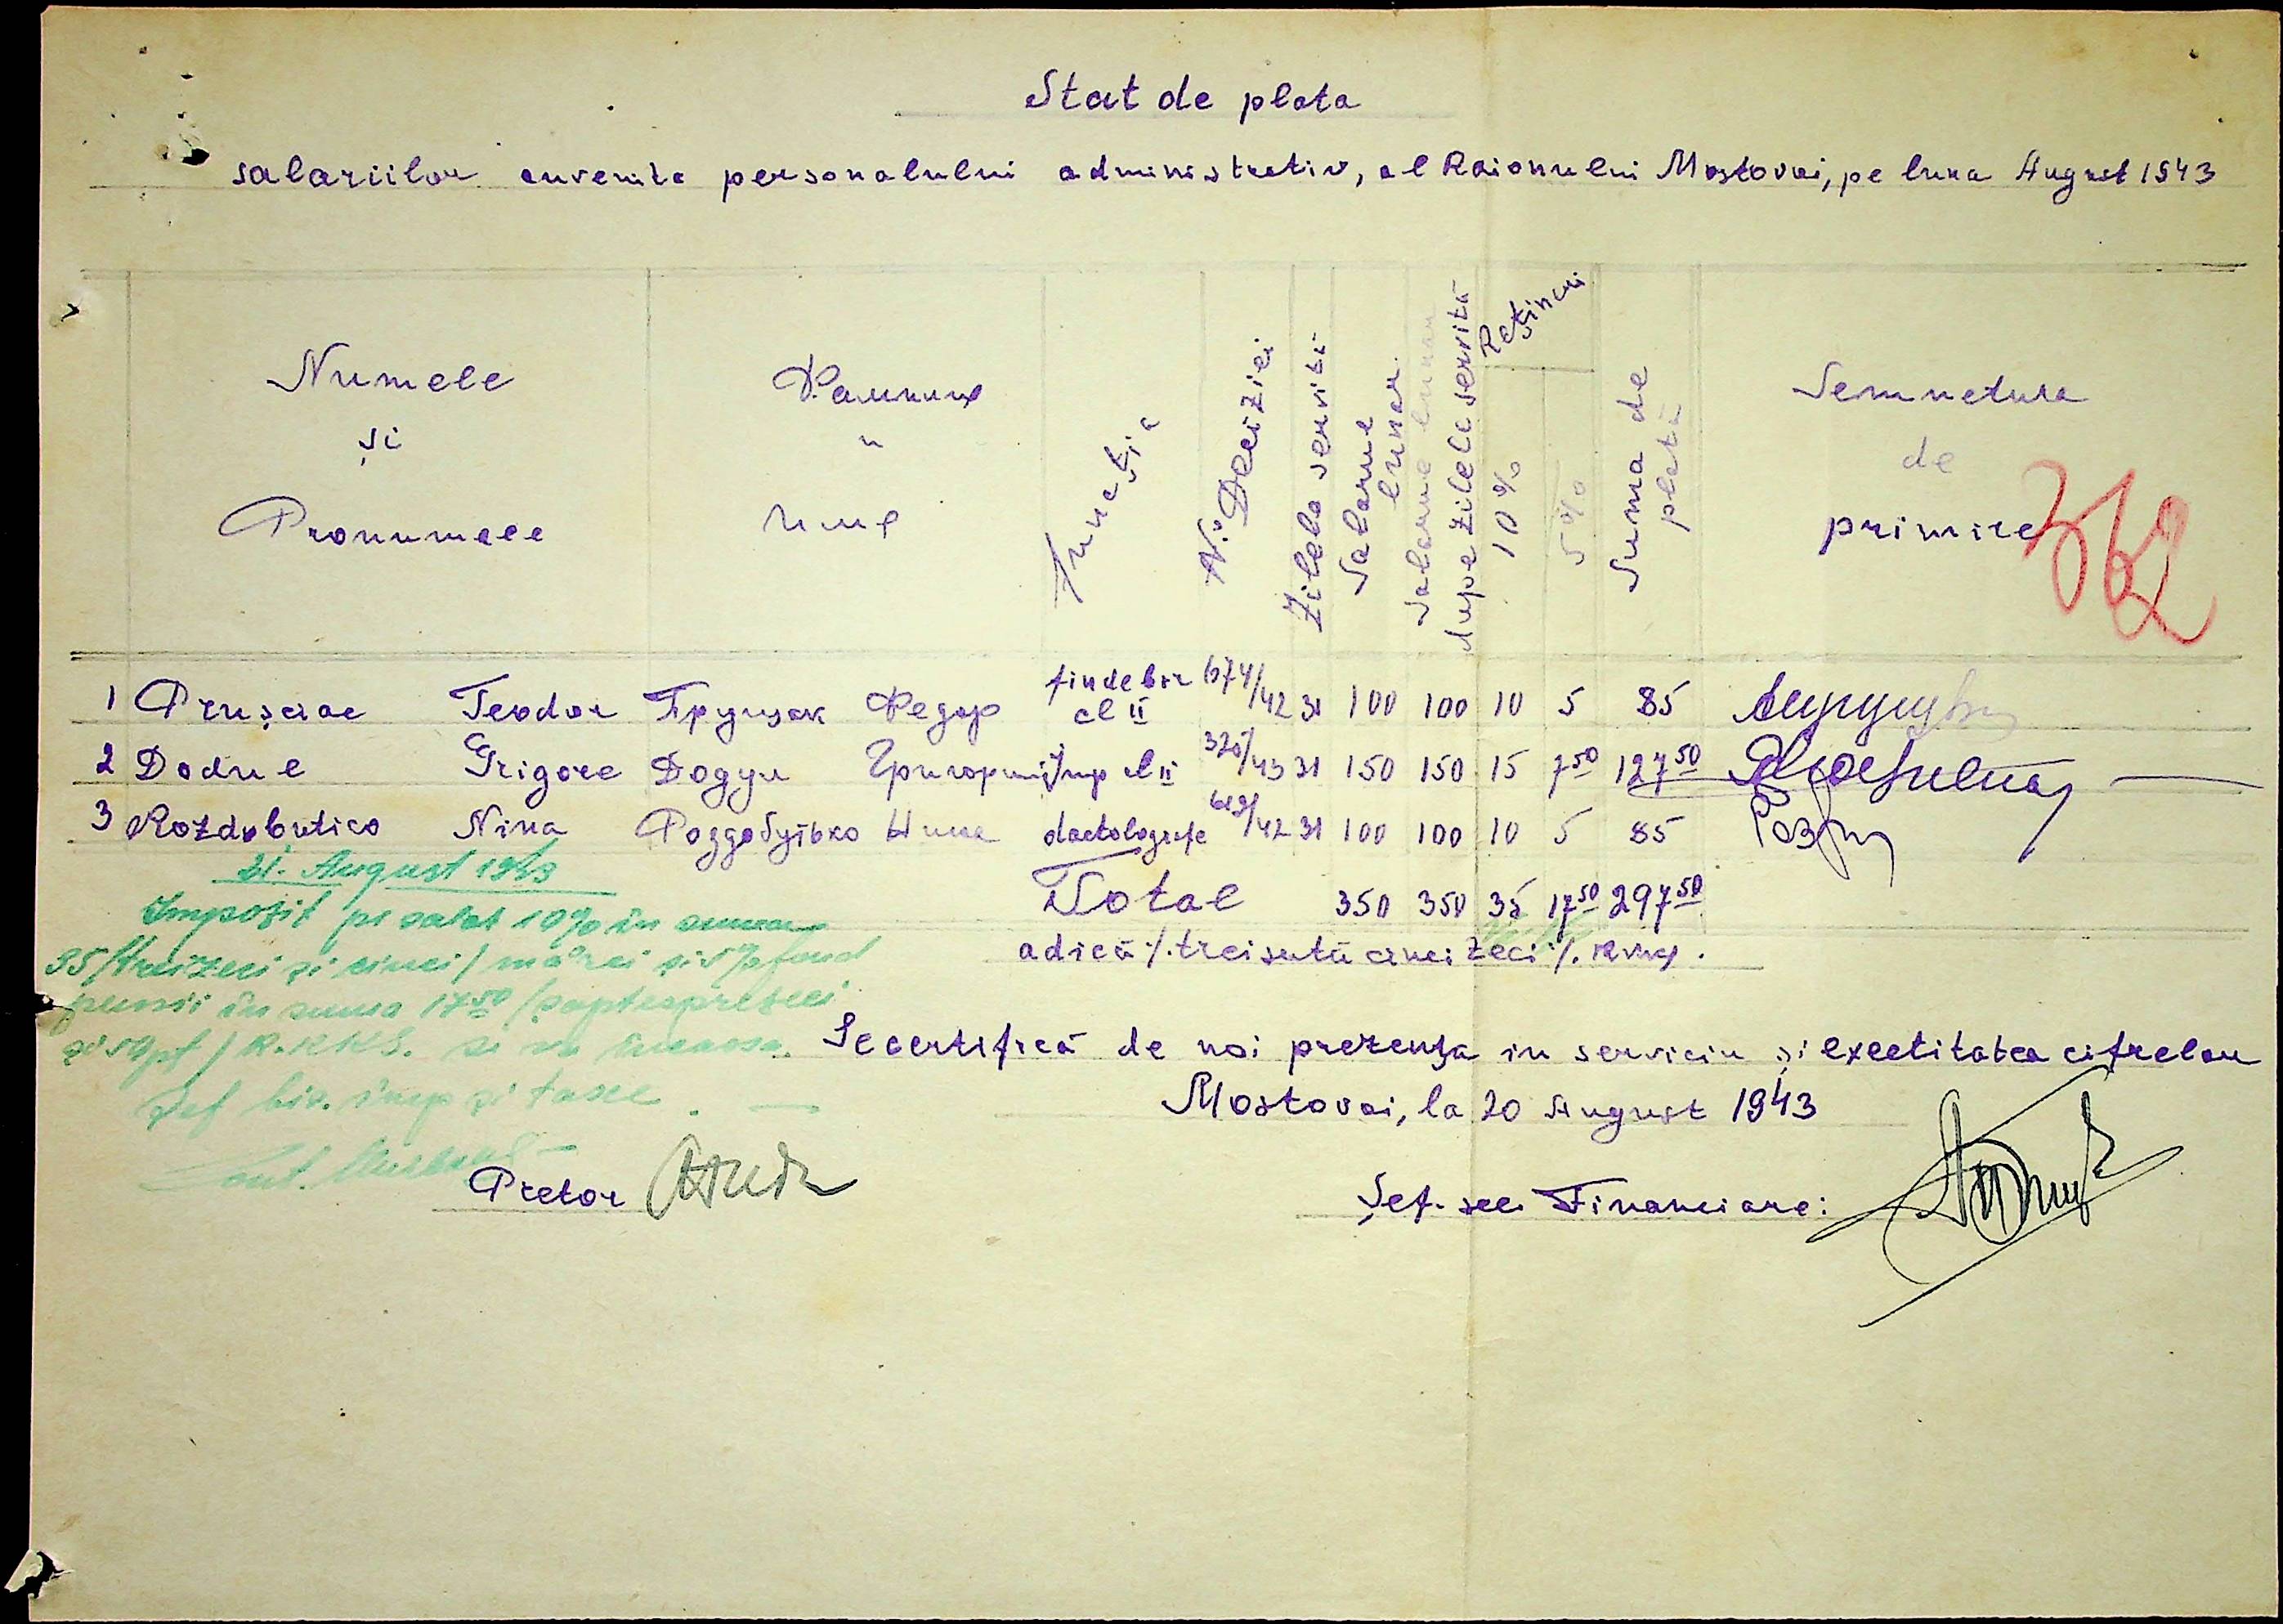 Stat de plata
salariilor cuvenite personalului administrativ, al Raionului Mostovoi, pe luna August 1943
Numele și Pronumele
Фамилия и Имя
Funcția
N° Deciziei
Zilele servite
Salariul lunar
Salariul lunar dupe zilele servită
Rețineri
10%
5%
Suma de plată
Semnetura de primire
362
1 Prușciac Teodor Прущак Федор findebir cl II 674/42 31 100 100 10 5 85
2 Dodul Grigore Додул Григорий Imp cl II 325/43 31 150 150 15 7 50 127 50
3 Rozdobutico Nina Роздобутько Нина dactilografe 619/42 31 100 100 10 5 85
Total 350 350 35 17 50 297 50
adică /. treisută cinci zeci /. RKKS.
31. August 1943
Impozit pe salar 10% în suma
35 /treizeci și cinci/ mărci și 5% fond
pensii în suma 17 50 /șaptesprezeci
și 50 pf/ R.KKS. se va încasa.
Șef bir. imp și taxe
Se certifică de noi prezența in serviciu și exectitatea cifrelor
Mostovoi, la 20 August 1943
Pretor
Șef. sec. Financiare: